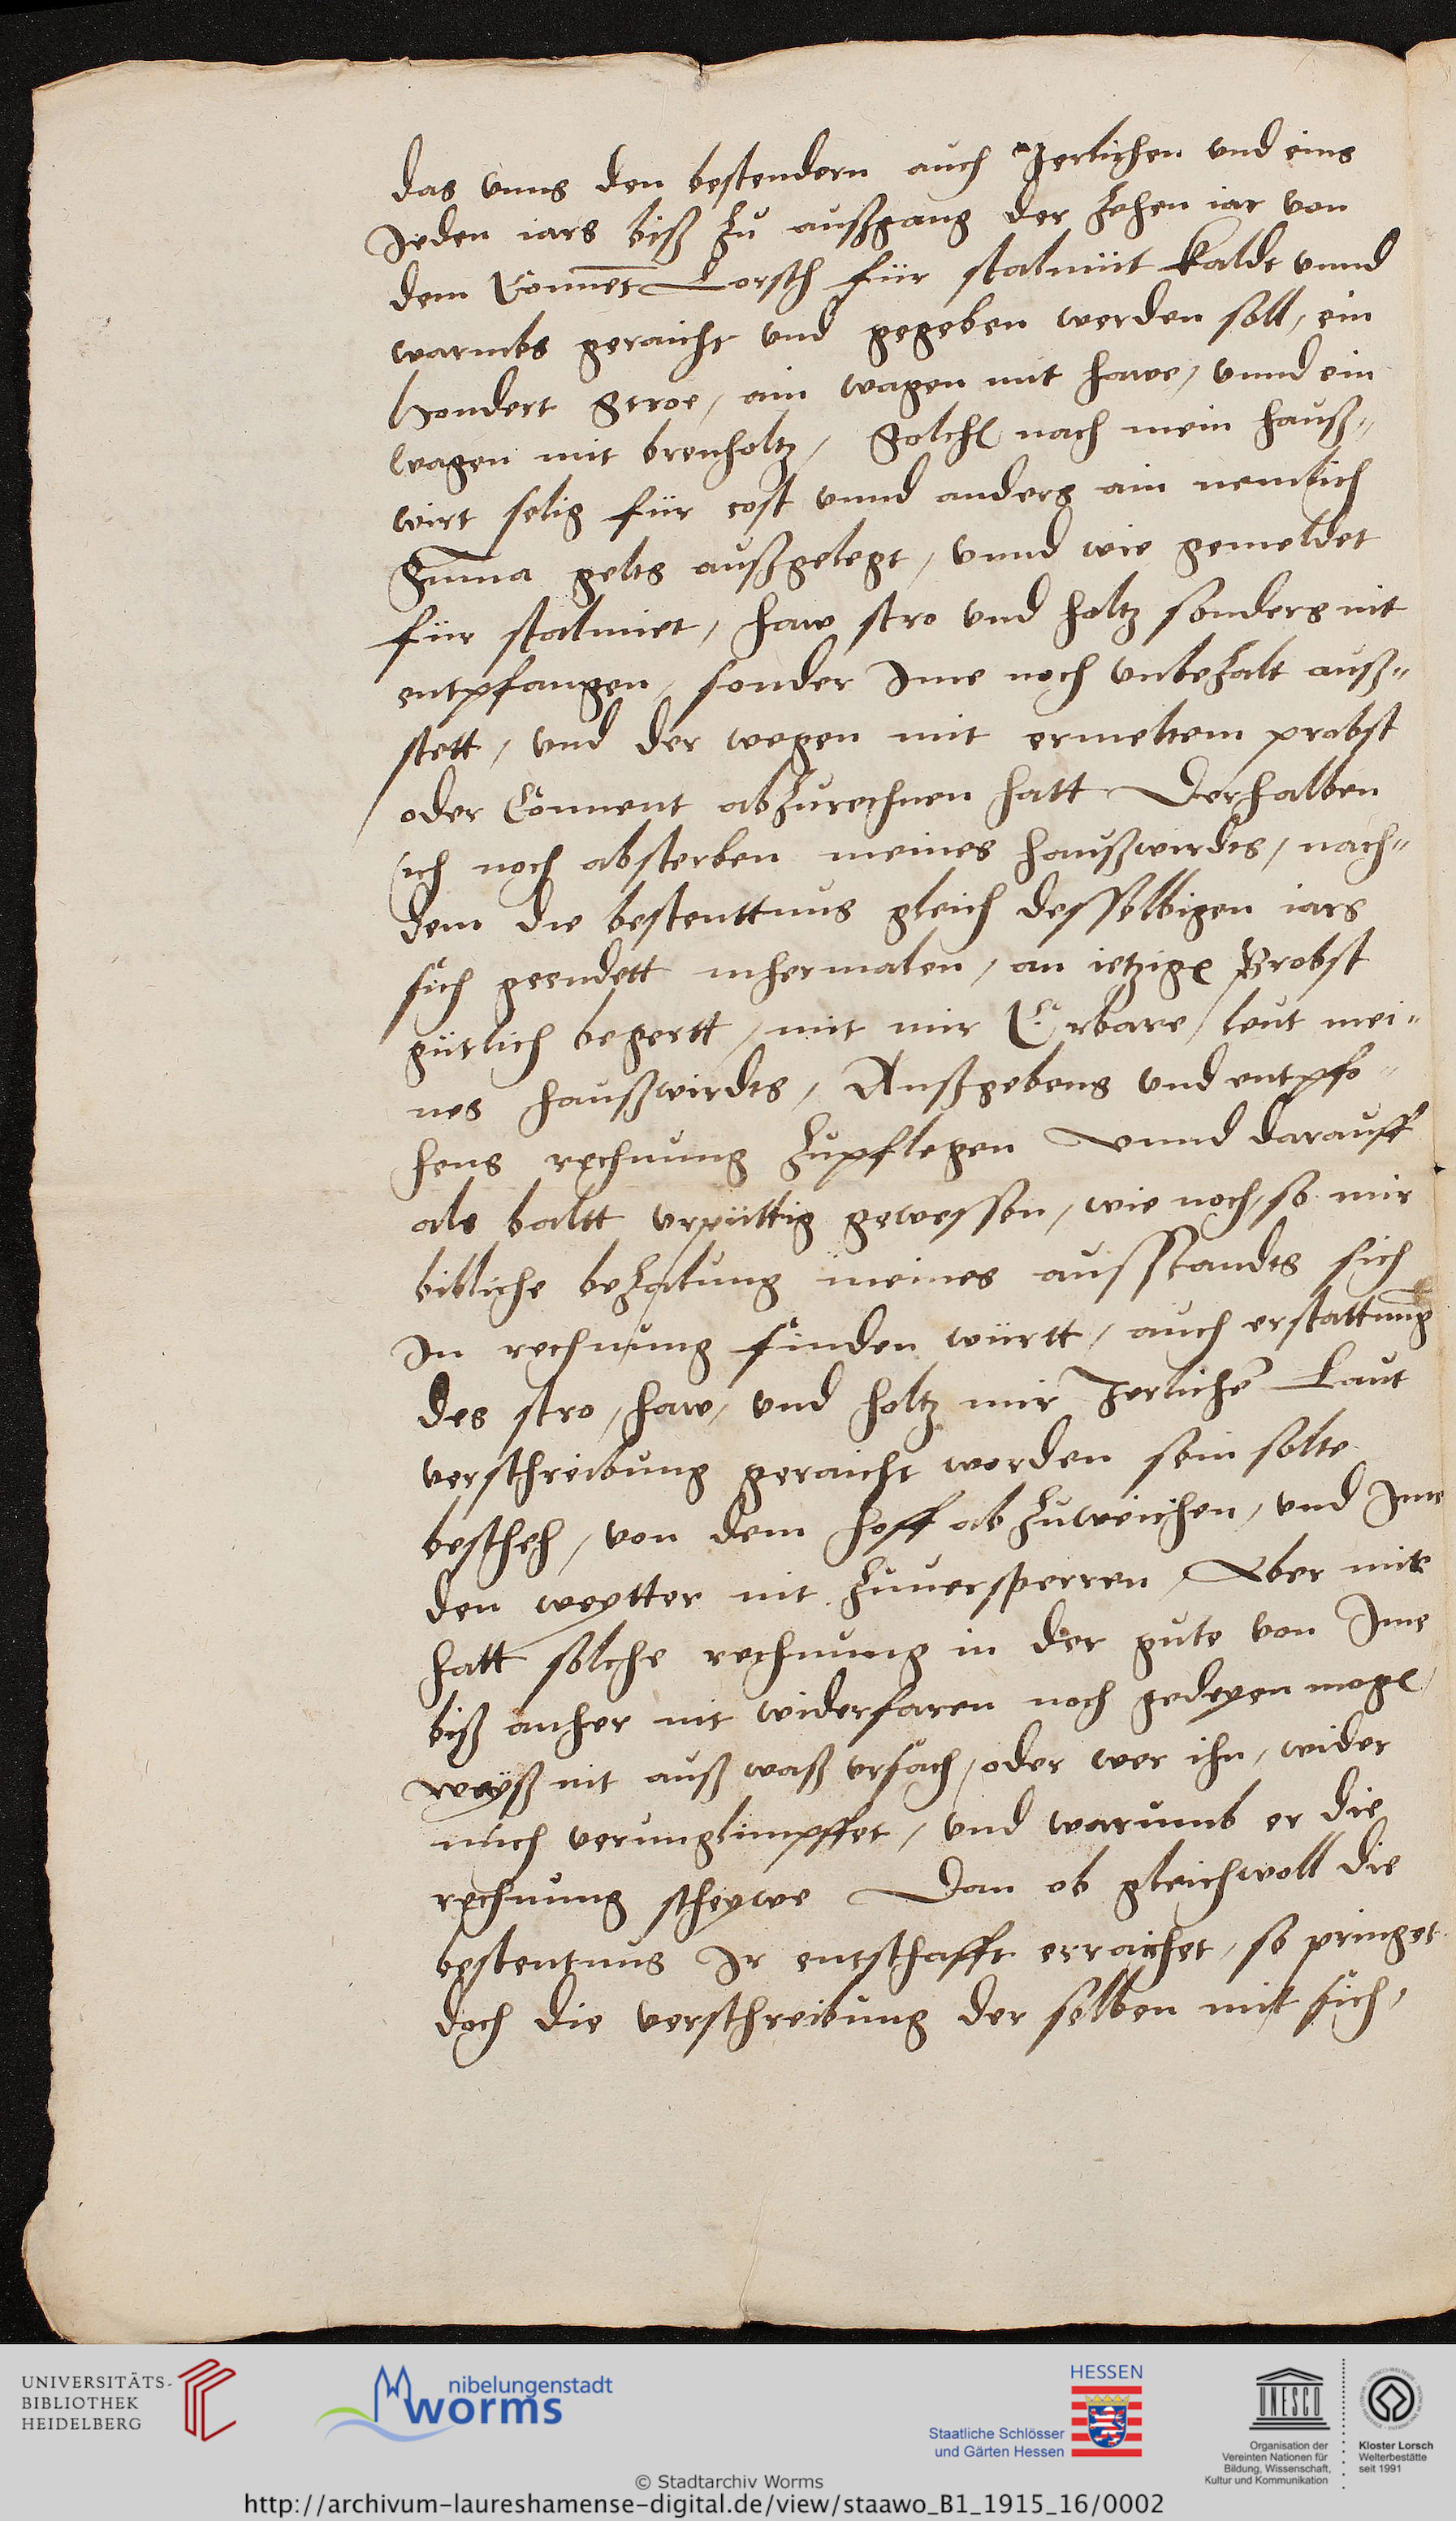 das vnns den bestendern auch Jerlichen vnd eins
Jeden iars biß zu außgang der zehen iar von
dem Conuent Lorsch für stalmiit kaldt vnnd
warmbs geraicht vnd gegeben werden soll, ein
hondert stroe, ain wagen mit hawe, vnnd ein
wagen mit brenholtz, Solchs nach mein hauß„
wirt selig für cost vnnd anders ain nemlich
Suma gelts außgelegt, vnnd wie gemeldet
für stalmiet, haw stro vnd holtz sonders nit
entpfangen, sonder Ime noch vnbezalt auß„
stett, vnd der wegen mit ermeltem probst
oder Conuent abzurechnen hatt Derhalben
ich noch absterben meines haußwirdts, nach„
dem die bestenttnus gleich desselbigen iars
sich geendett mhermalen, an ietzigen Probst
gütlich begertt, mit mir Erbare leut mei„
nes haußwirdts, Außgebens vnd entpfa„
hens rechnung zupflegen Vnnd darauff
als baltt vrpüttig gewessen, wie noch, so mir
billiche bezalung meines ausstandts sich
In rechnung finden württ, auch erstattung
des stro, haw, vnd holtz mir Jerlichen Laut
verschreibung geraicht worden sein solte
bescheh, von dem hoff abzuweichen, vnd Ime
den weytter nit zuuersperren, Aber mir
hatt solche rechnung in der gute von Ime
biß anher nit widerfaren noch gedeyen mogen,
weyß nit auß waß vrsach, oder wer ihn, wider
mich verunglimpffet, vnd warumb er die
rechnung scheywe Dan ob gleichwoll die
bestentnus Ir entschafft erraichet, so pringet
doch die verschreibung der selben mit sich,
UNIVERSITÄTS-
BIBLIOTHEK
HEIDELBERG
nibelungenstadt
worms
HESSEN
Staatliche Schlösser
und Gärten Hessen
UNESCO
Organisation der
Vereinten Nationen für
Bildung, Wissenschaft,
Kultur und Kommunikation
Kloster Lorsch
Welterbestätte
seit 1991
© Stadtarchiv Worms
http://archivum-laureshamense-digital.de/view/staawo_B1_1915_16/0002